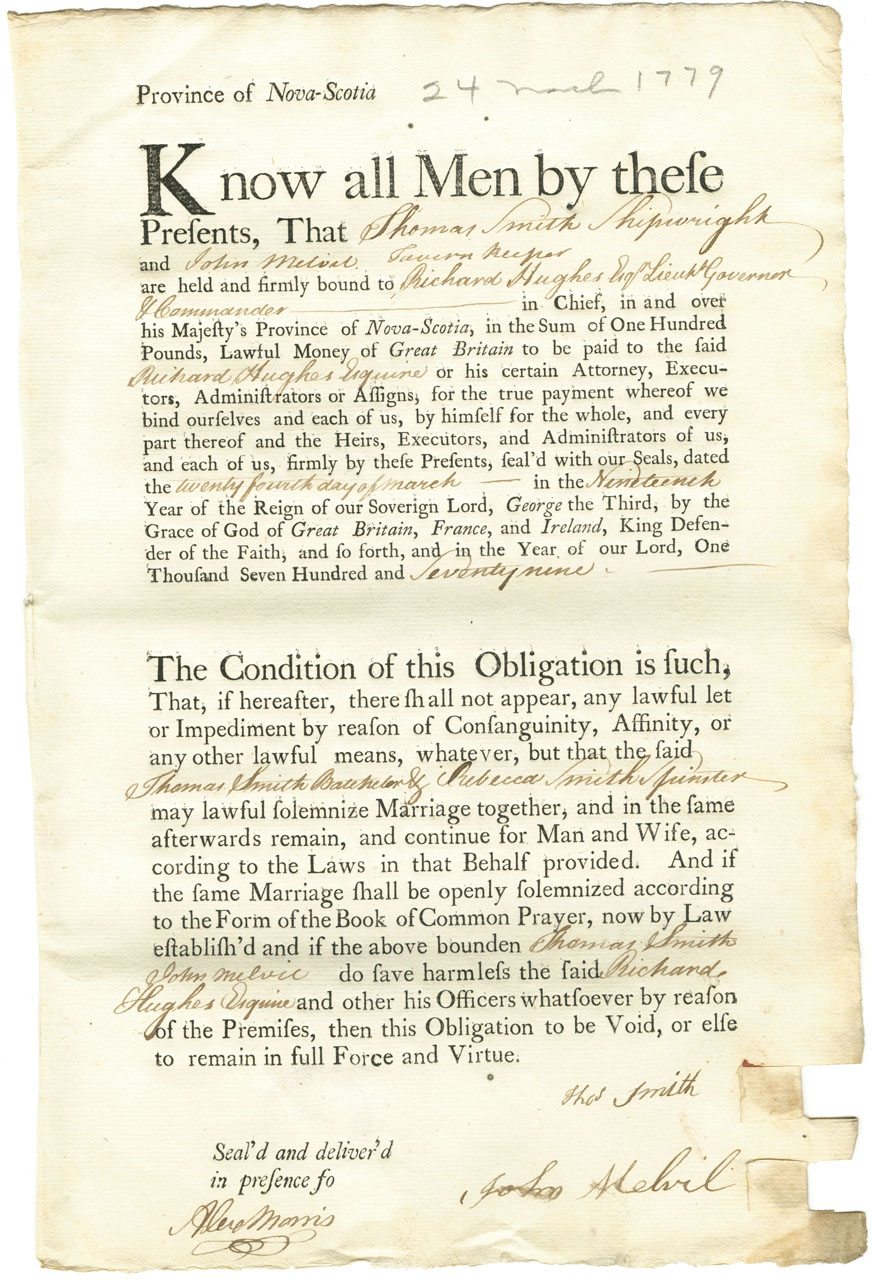 Province of Nova-Scotia 24 March 1779
Know all Men by theſe
Preſents, That Thomas Smith Shipwright
and John Melvil Tavern Keeper
are held and firmly bound to Richard Hughes Esqr Lieut Governor
& Commander in Chief, in and over
his Majeſty's Province of Nova-Scotia, in the Sum of One Hundred
Pounds, Lawful Money of Great Britain to be paid to the ſaid
Richard Hughes Esquire or his certain Attorney, Execu-
tors, Adminiſtrators or Aſſigns, for the true payment whereof we
bind ourſelves and each of us, by himſelf for the whole, and every
part thereof and the Heirs, Executors, and Adminiſtrators of us,
and each of us, firmly by theſe Preſents, ſeal'd with our Seals, dated
the twenty fourth day of March in the Nineteenth
Year of the Reign of our Soverign Lord, George the Third, by the
Grace of God of Great Britain, France, and Ireland, King Defen-
der of the Faith, and ſo forth, and in the Year of our Lord, One
Thouſand Seven Hundred and Seventy nine
The Condition of this Obligation is ſuch,
That, if hereafter, there ſhall not appear, any lawful let
or Impediment by reaſon of Conſanguinity, Affinity, or
any other lawful means, whatever, but that the ſaid
Thomas Smith Batchelor & Rebecca Smith Spinster
may lawful ſolemnize Marriage together, and in the ſame
afterwards remain, and continue for Man and Wife, ac-
cording to the Laws in that Behalf provided. And if
the ſame Marriage ſhall be openly ſolemnized according
to the Form of the Book of Common Prayer, now by Law
eſtabliſh'd and if the above bounden Thomas Smith
John Melvil do ſave harmleſs the ſaid Richard
Hughes Esquire and other his Officers whatſoever by reaſon
of the Premiſes, then this Obligation to be Void, or elſe
to remain in full Force and Virtue.
Thos Smith
Seal'd and deliver'd
in preſence fo
John Melvil
Alexr Morris